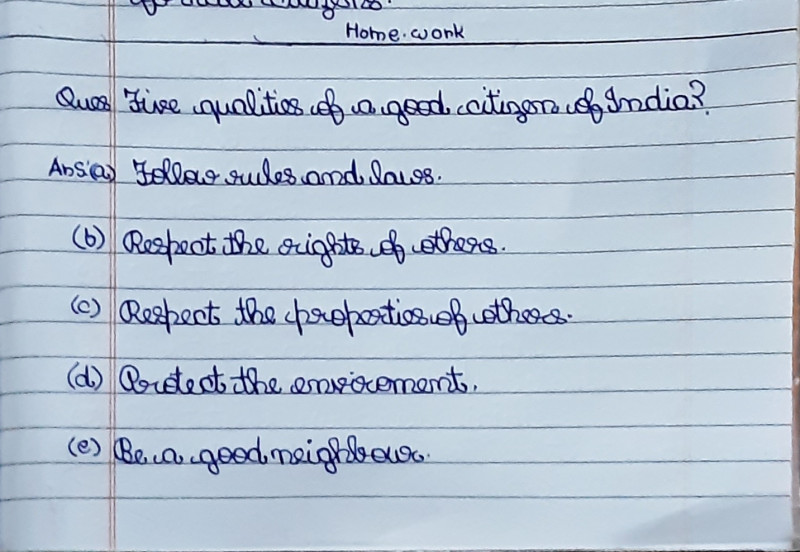 Home.work
Ques Five qualities of a good citizen of India?
Ans(a) Follow rules and laws.
(b) Respect the rights of others.
(c) Respect the properties of others.
(d) Protect the envirement.
(e) Be a good neighbour.